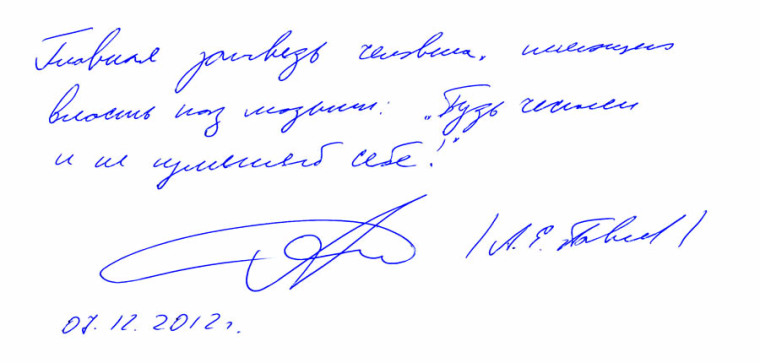 Главная заповедь человека, имеющего
власть над людьми: „Будь честен
и не изменяй себе!"
/А. Е. Павлов/
07.12.2012г.